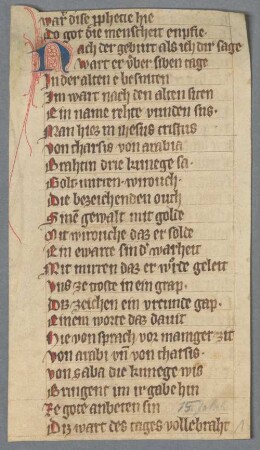 war dise pphetie hie
Do got die menscheit enpfie.
Nach der geburt als ich dir sage
wart er uber siben tage
In der alten e besniten
Im wart nach den alten siten
Ein name rehte vunden sus.
Man hiez in ihesus cristus
Von tharsis von arabia
Brahtin drie kunege sa.
Golt mirren. wirouch.
Die bezeichenden ouch
Sine gewalt mit golde
Mit wirouche daz er solde
Ein ewarte sin d' warheit
Mit mirren daz er wrde geleit
Vns ze troste in ein grap.
Diz zeichen ein vreunde gap.
Einem worte daz dauit
Hie von sprach vor maniger zit
Von arabi vn von tharsis.
Von saba die kunege wis
Bringent im ir gabe hin
Ze gote anbeten sin
Diz wart des tages vollebraht